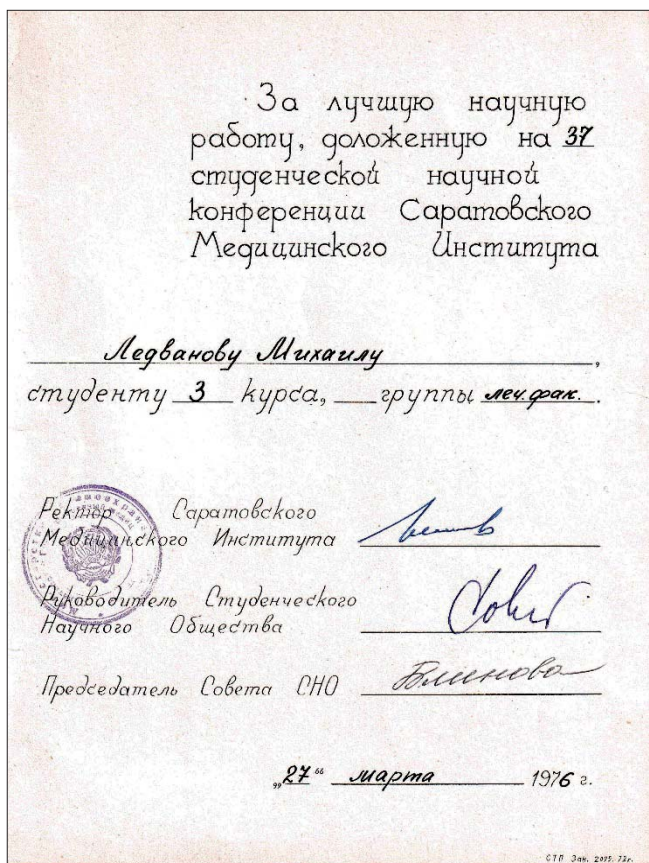 За лучшую научную
работу, доложенную на 37
студенческой научной
конференции Саратовского
Медицинского Института
Ледванову Михаилу,
студенту 3 курса, группы леч. фак.
Ректор Саратовского
Медицинского Института
Руководитель Студенческого
Научного Общества
Председатель Совета СНО Блинова
„27“ марта 1976 г.
СТП Зак. 2095. 72г.